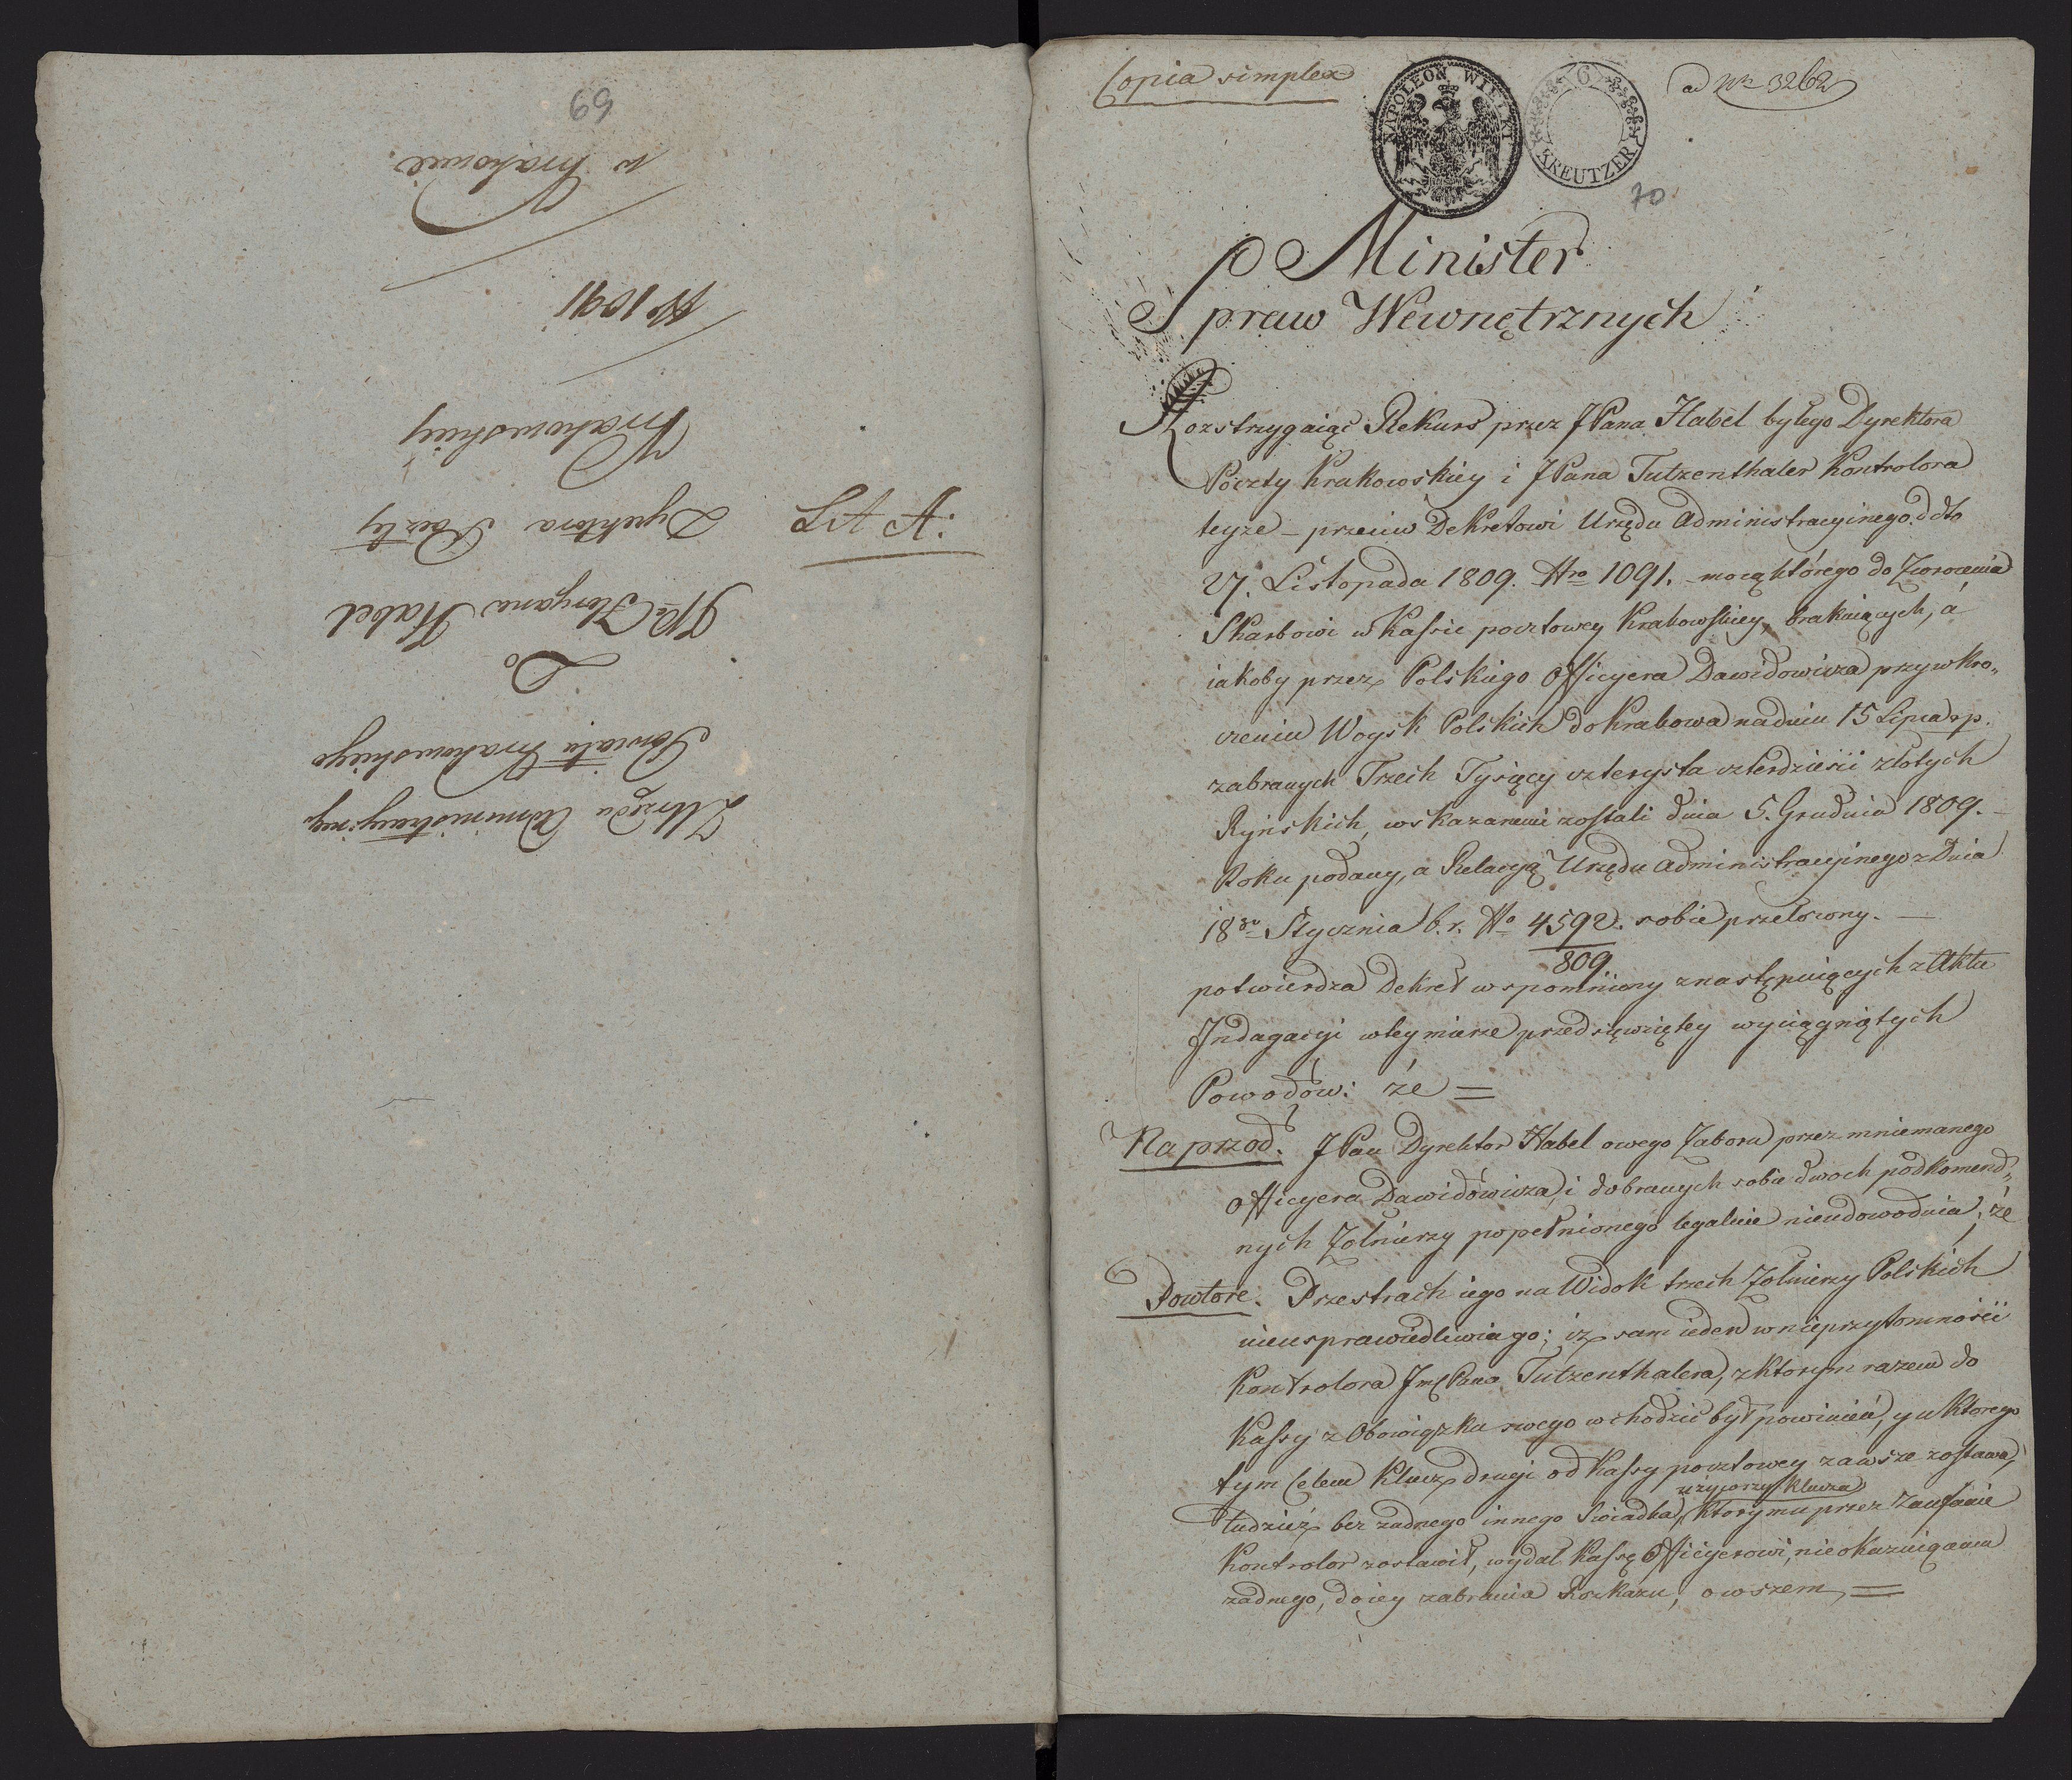 69
Z Urzędu Administracyineg.
Powiatu Krakowskiego
Do
JPa Floryana Habel
Dyrektora Poczty
Krakowskiey
Lit A:
No 1091
w Krakowie
Copia simplex
NAPOLEON WIELKI
6
KREUTZER
ad Nr 3262
70
Minister
Spraw Wewnętrznych
Rozstrzygaiąc Rekurs przez JPana Habel byłego Dyrektora
Poczty Krakowskiey i JPana Tutzenthaler Kontrolora
teyże – przeciw Dekretowi Urzędu Administracyinego ddto
27. Listopada 1809. Nro 1091. mocą którego do Zwrocenia
Skarbowi w Kassie pocztowey Krakowskiey, brakuiących, á
iakoby przez Polskiego Officyera Dawidowicza przy wkro„
czeniu Woysk Polskich do Krakowa na dniu 15 Lipca r. p.
zabranych Trzech Tysięcy czterysta czterdzieści złotych
Ryńskich, wskazanemi zostali dnia 5. Grudnia 1809. –
Roku podany, a Relacyą Urzędu Administracyinego z Dnia
18go Stycznia b. r. No 4592. sobie przełozony. —
809
potwierdza Dekret wspomniony z następuiących z Aktu
Indagacyi w tey mierze przedsięwziętey wyciągniętych
Powodów: że =
Naprzod. JPan Dyrektor Habel owego Zaboru przez mniemanego
Officyera Dawidowicza, i dobranych sobie dwoch podkomend„
nych Zołnierzy popełnionego legalnie nieudowodnia, że
Powtore. Przestrach iego na Widok trzech Zołnierzy Polskich
nieusprawiedliwia go; iż sam ieden w nieprzytomności
Kontrolora JmćPana Tutzenthalera, z ktorym razem do
Kassy z Obowiązku swego wchodzić był powinien, y u ktorego
tym Celem Klucz drugi od Kassy pocztowey zawsze zostawa,
używorzy Klucza
tudzież bez żadnego innego Swiadka, ktory mu przez Zaufanie
Kontrolor zostawił, wydał Kassę Officyerowi, nieokazuiącemu
żadnego, do iey zabrania Rozkazu, owszem, =